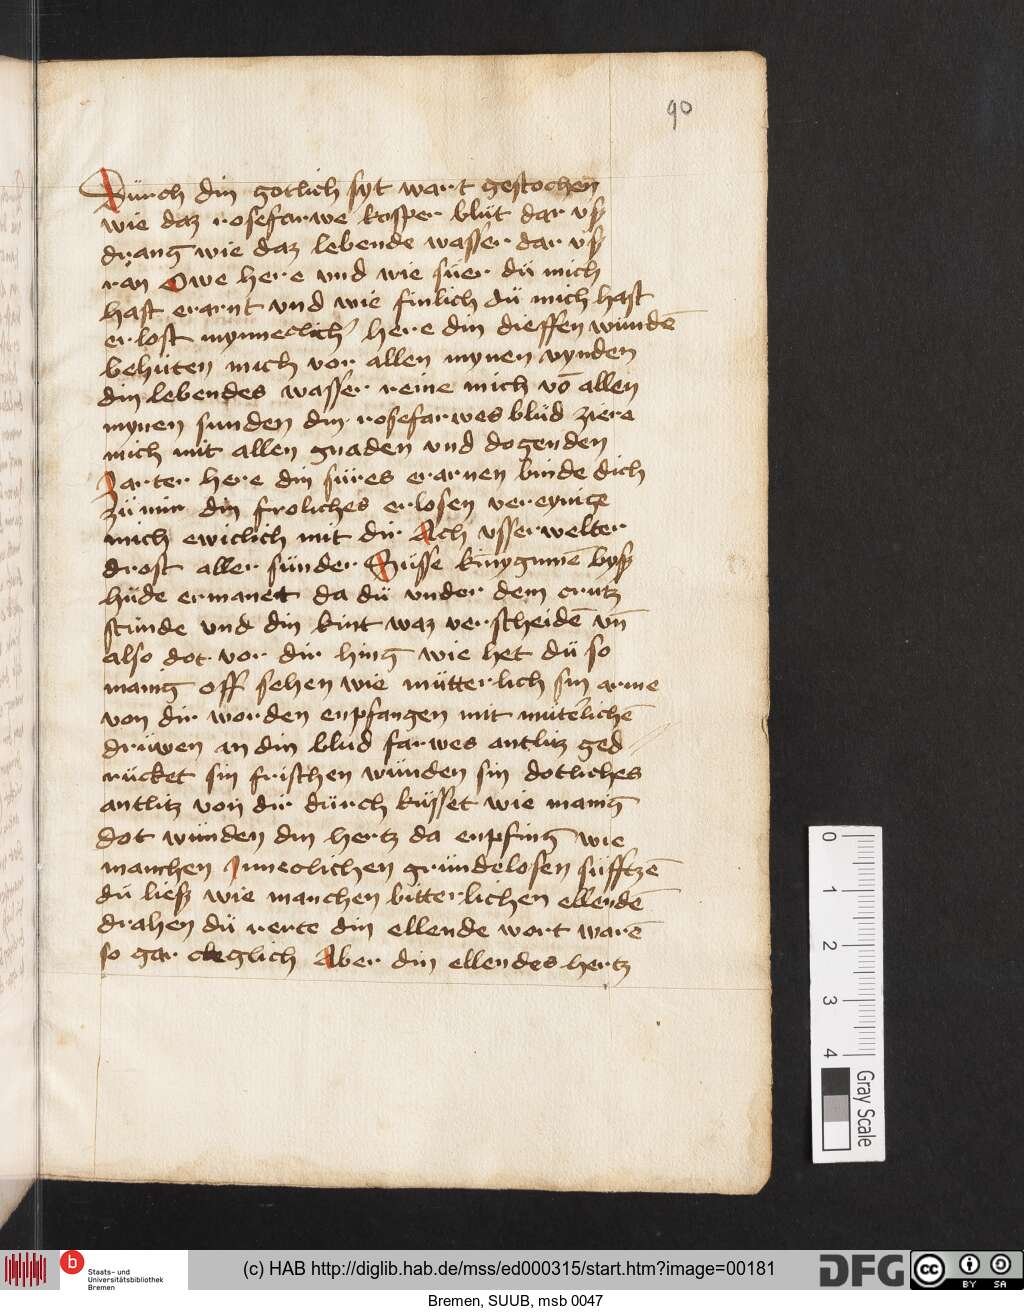 90
Dürch din gotlich syt wart gestochen
wie daz rosefarwe kosper blüt dar vß
drang wie daz lebende wasser dar vß
ran Owe here vnd wie süer dü mich
hast erarnt vnd wie finlich dü mich hast
erlost mynneclich here din dieffen wündē
behüten mich vor allen mynen vynden
din lebendes wasser reine mich vō allen
mynen sunden din rosefarwes blüd ziere
mich mit allen gnaden vnd dogenden
Zarter here din süres erarnen binde dich
zü mir din froliches erlosen vereynige
mich ewiclich mit dir Ach vsserwelter
drost aller sünder Süsse kuͥnyginnē byß
hüde ermanet da dü vnder dem crutz
stünde vnd din kint waz verscheidē vn̄
also dot vor dir hing wie het dü so
manig off sehen wie mütterlich sin arme
von dir worden enpfangen mit müterlichē
drüwen an din blüd farwes antlitz ged
rücket sin frischen wünden sin dotliches
antlitz von dir dürch küsset wie manig
dot wünden din hertz da enpfing wie
manchen Jnneclichen gründelosen süfftzē
dü ließ wie manchen bitterlichen ellendē
drahen dü rerte din ellende wort warē
so gar cleglich Aber din ellendes hertz
0
1
2
3
4
Gray Scale
b
Staats- und
Universitätsbibliothek
Bremen
(c) HAB http://diglib.hab.de/mss/ed000315/start.htm?image=00181
DFG
cc
BY
SA
Bremen, SUUB, msb 0047